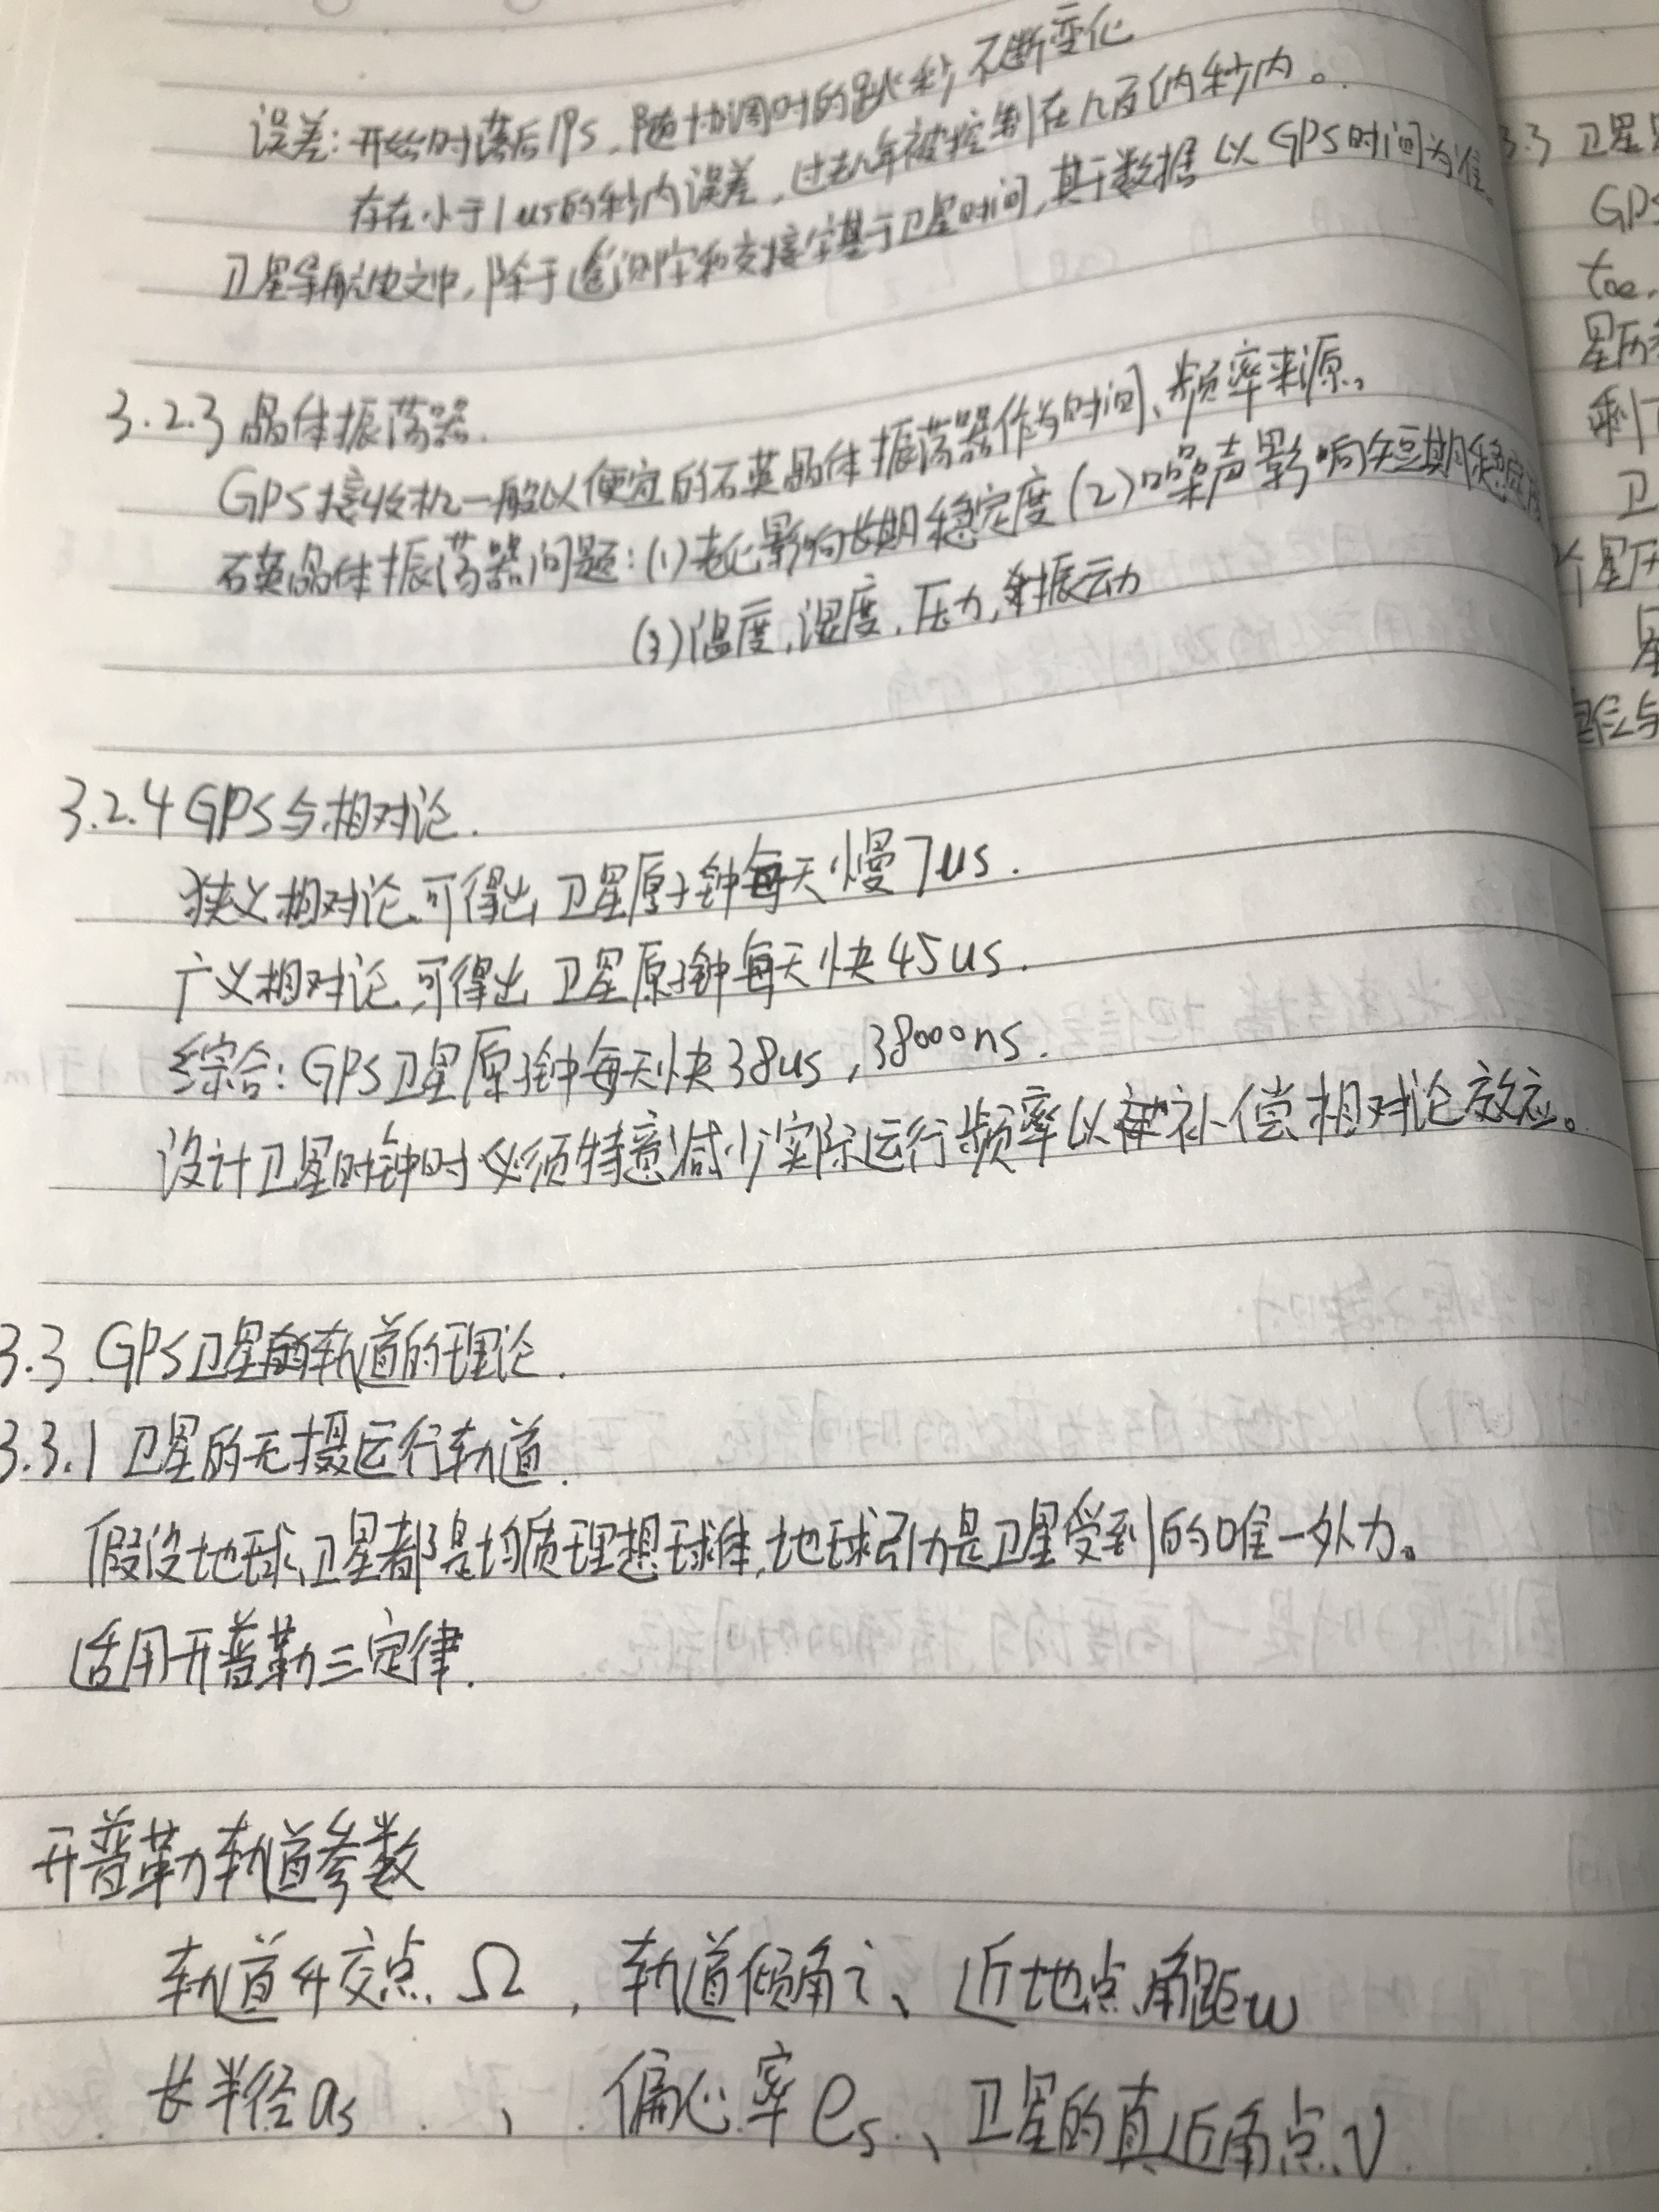 误差:开始时落后19s,随协调时的跳秒,不断变化
存在小于1us的秒内误差,过去几年被控制在几百纳秒内。
卫星导航电文中,除于遥测字和交接字基于卫星时间,其于数据以GPS时间为准
3.2.3 晶体振荡器.
GPS接收机一般以便宜的石英晶体振荡器作为时间、频率来源。
石英晶体振荡器问题:(1)老化影响长期稳定度(2)噪声影响短期稳定度
(3)温度,湿度,压力,振动
3.2.4 GPS与相对论.
狭义相对论可得出 卫星原子钟每天慢7us.
广义相对论可得出 卫星原子钟每天快45us.
综合:GPS卫星原子钟每天快38us,38000ns.
设计卫星时钟时必须特意减少实际运行频率以补偿相对论效应。
3.3 GPS卫星轨道的理论.
3.3.1 卫星的无摄运行轨道.
假设地球、卫星都是均质理想球体,地球引力是卫星受到的唯一外力。
适用开普勒三定律.
开普勒轨道参数
轨道升交点 Ω,轨道倾角i、近地点角距w
长半径as、偏心率es、卫星的真近角点ν
3.3 卫星
GPS
toe,
星历
剩下
卫
个星历